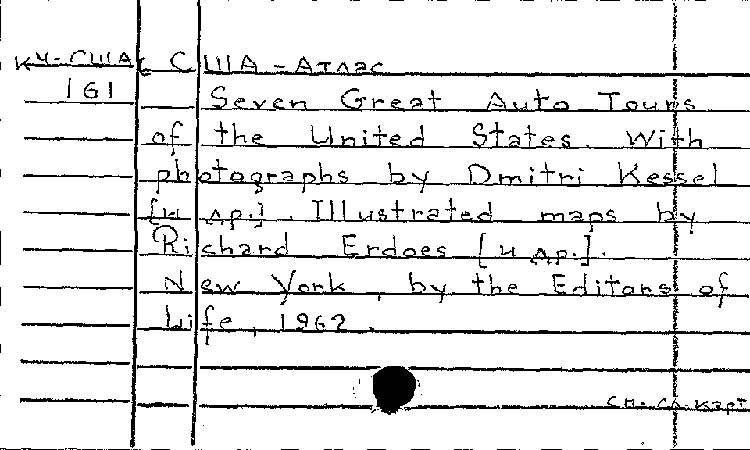 Кч-США США - Атлас
161 Seven Great Auto Tours
of the United States. With
photographs by Dmitri Kessel
[и др.]. Illustrated maps by
Richard Erdoes [и др.].
New York, by the Editors of
Life, 1962.
См. сл. карт